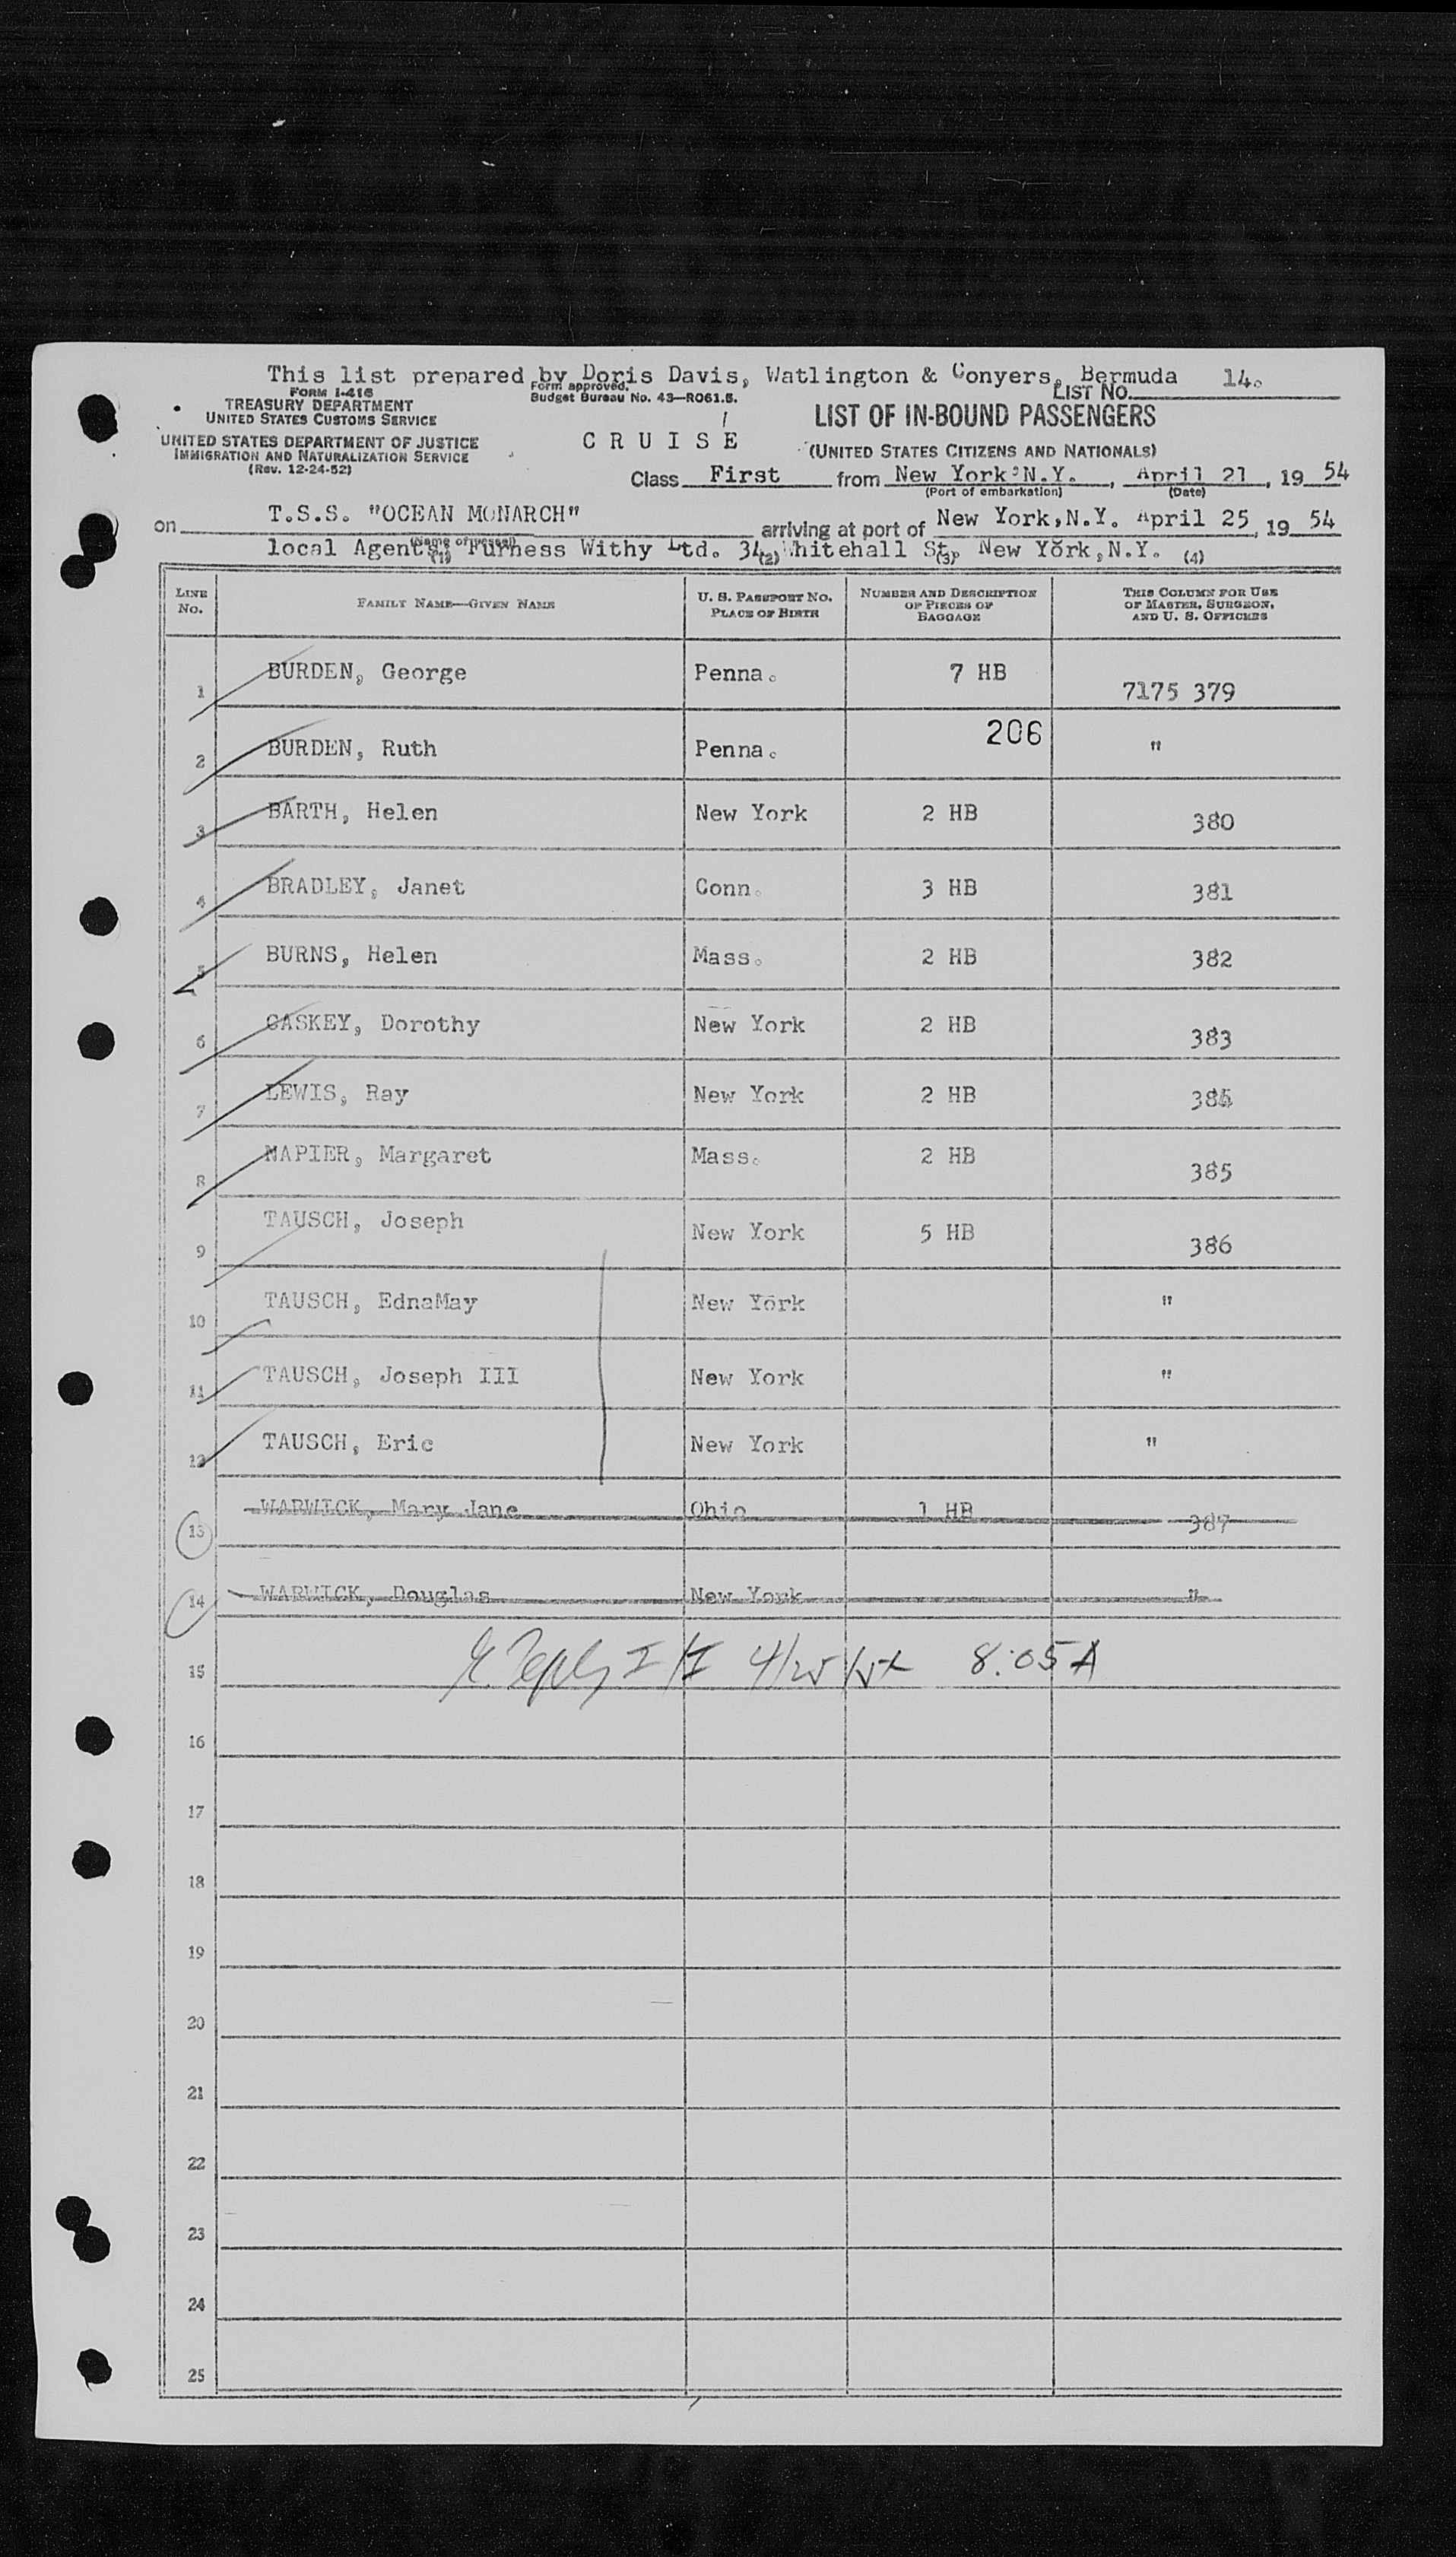 This list prepared by Doris Davis, Watlington & Conyers, Bermuda 14.
FORM I-416
TREASURY DEPARTMENT
UNITED STATES CUSTOMS SERVICE
UNITED STATES DEPARTMENT OF JUSTICE
IMMIGRATION AND NATURALIZATION SERVICE
(Rev. 12-24-52)
Form approved.
Budget Bureau No. 43—R061.5.
CRUISE
LIST NO.
LIST OF IN-BOUND PASSENGERS
(UNITED STATES CITIZENS AND NATIONALS)
Class First from New York, N.Y., April 21, 19 54
(Port of embarkation) (Date)
on T.S.S. "OCEAN MONARCH" arriving at port of New York, N.Y. April 25, 19 54
(Name of vessel)
local Agents, Furness Withy Ltd. 34, Whitehall St, New York, N.Y.
(1) (2) (3) (4)
LINE NO. FAMILY NAME—GIVEN NAME U. S. PASSPORT NO. PLACE OF BIRTH NUMBER AND DESCRIPTION OF PIECES OF BAGGAGE THIS COLUMN FOR USE OF MASTER, SURGEON, AND U. S. OFFICERS
1 BURDEN, George Penna. 7 HB 7175 379
2 BURDEN, Ruth Penna. 206 "
3 BARTH, Helen New York 2 HB 380
4 BRADLEY, Janet Conn. 3 HB 381
5 BURNS, Helen Mass. 2 HB 382
6 CASKEY, Dorothy New York 2 HB 383
7 LEWIS, Ray New York 2 HB
8 NAPIER, Margaret Mass. 2 HB 385
9 TAUSCH, Joseph New York 5 HB 386
10 TAUSCH, EdnaMay New York "
11 TAUSCH, Joseph III New York "
12 TAUSCH, Eric New York "
13 WARWICK, Mary Jane Ohio 1 HB 387
14 WARWICK, Douglas New York "
15 4/25/54 8:05 A
16
17
18
19
20
21
22
23
24
25